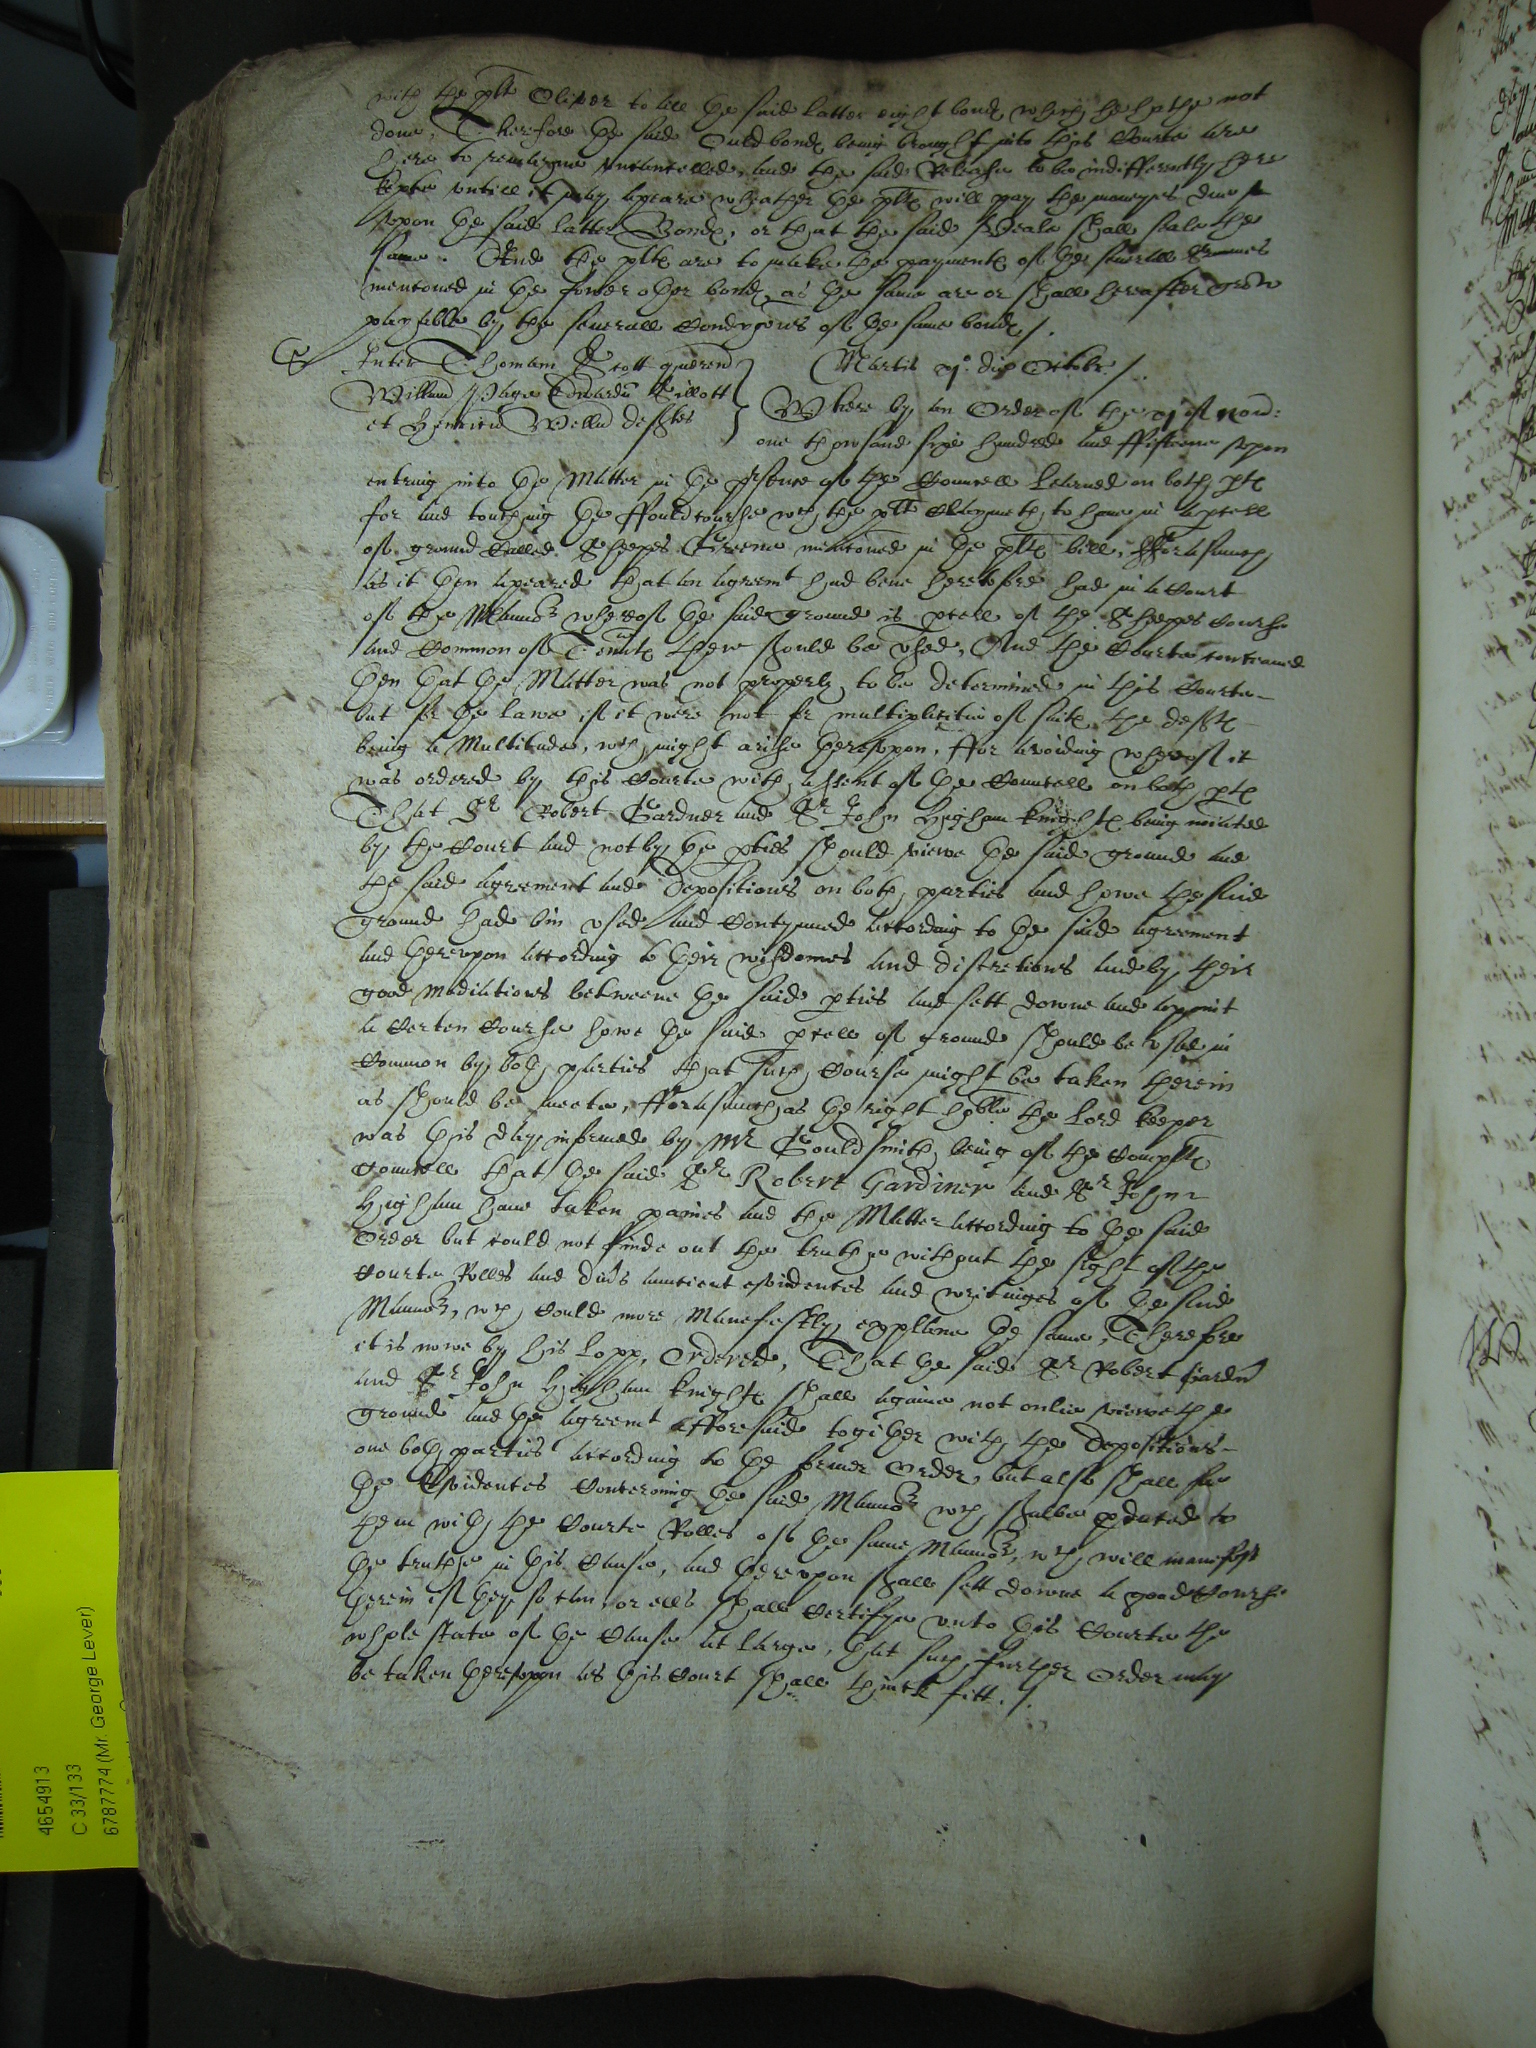 with the plt Oliver to lett the said latter eight bond wherin he hathe not
done, Therefore the said Ould bond being brought into this Courte are
here to remayne uncancelled, and the said Release to be indifferently here
kepte untill it may apeare wheather the plts will pay the moneyes due
upon the said latter Bond, or that the said Deale shall seale the
same. And the plts are to make the payment of the severall Sumes
mentoned in the fower other bond, as the same are or shall hereafter grow
payable by the severall Condycons of the same bond /.
S Inter Thomam Scott querend
Willm Page Edwardū Sillott
et Henricū Wells defftes
Martis vj° die Octobr /.
Where by an Order of the vj of
one thowsand sixe hundred and ffifteene upon
entring into the Matter in the psence of the Councell Learned on both pts
for and touching the ffouldcourse wch the plt Claymeth to have in a pcell
of ground Called Sheepes Greene mentoned in the plts bill, fforasmuch
as it then apeared that an agreemt had bene heretofore had in a Court
of the Mannor whereof the said ground is pcell of the Sheepes Course
and Common of Tennts there should be used, And the Courte conceaved
then that the Matter was not properly to be determined in this Courte
but for the lawe if it were not for multiplicitie of suits, the defts
being a Multitude, wch might arise thereuppon, ffor avoiding whereof it
was ordered by this Courte with assent of the Councell on both pts
That Sr Robert Gardner and Sr John Higham knights being noiated
by the Court and not by the pties should viewe the said ground and
the said agreement and Depositions on both parties and howe the said
ground had bin used and Contynued according to the said agreement
and thereupon according to their wisdomes and discretions and by their
good mediations betweene the said pties and sett downe and appoint
a Certen Course howe the said pcell of ground should be used in
Common by both parties that such Course might be taken therein
as should be meete, fforasmuch as the right hoble the Lord Keeper
was this day informed by Mr Gouldsmith being of the Complts
Councell that the said Sr Robert Gardiner and Sr John
Higham have taken paines and the Matter according to the said
Order but could not finde out the truthe without the sight of the
Courte Rolles and auntient evidences and writinges of the said
Mannor, wch Could more Manefestly explane the same, Therefore
it is nowe by his Lopp. Ordered, That the said Sr Robert Gardnr
and Sr John Higham knights shall againe not onlie viewe the
ground and the agreemt afforesaid together with the Depositions
one both parties according to the former Order, but also shall see
the Evidences Concerning the said Mannor wch shalbe pduced to
them with the Courte Rolles of the same Mannor, wch will manefest
the truthe in this Cause, and thereupon shall sett downe a good Course
therein if they so can, or ells shall Certifye unto this Courte the
whole state of the Cause at large, that such further Order may
be taken thereupon as this Court shall thinck fitt /.
4654913
C 33/133
6787774 (Mr. George Lever)